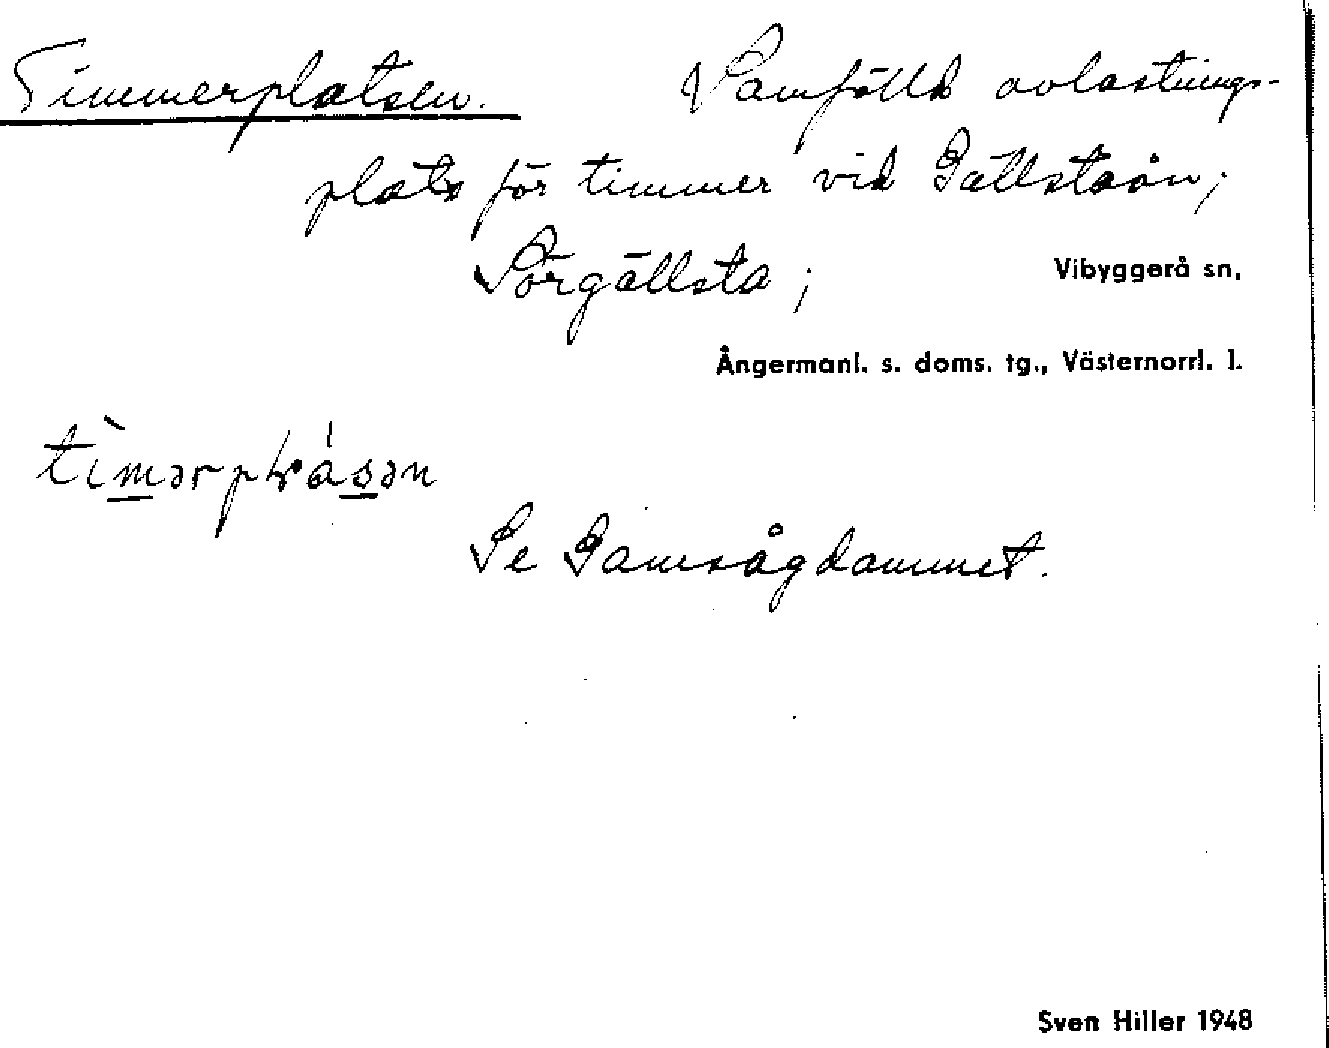 Timmerplatsen. Samfälld avlastnings-
plats för timmer vid Gällstaån;
Sörgällsta;
Vibyggerå sn,
Ångermanl. s. doms. tg., Västernorrl. l.
Se Gamsågdammet.
Sven Hiller 1948